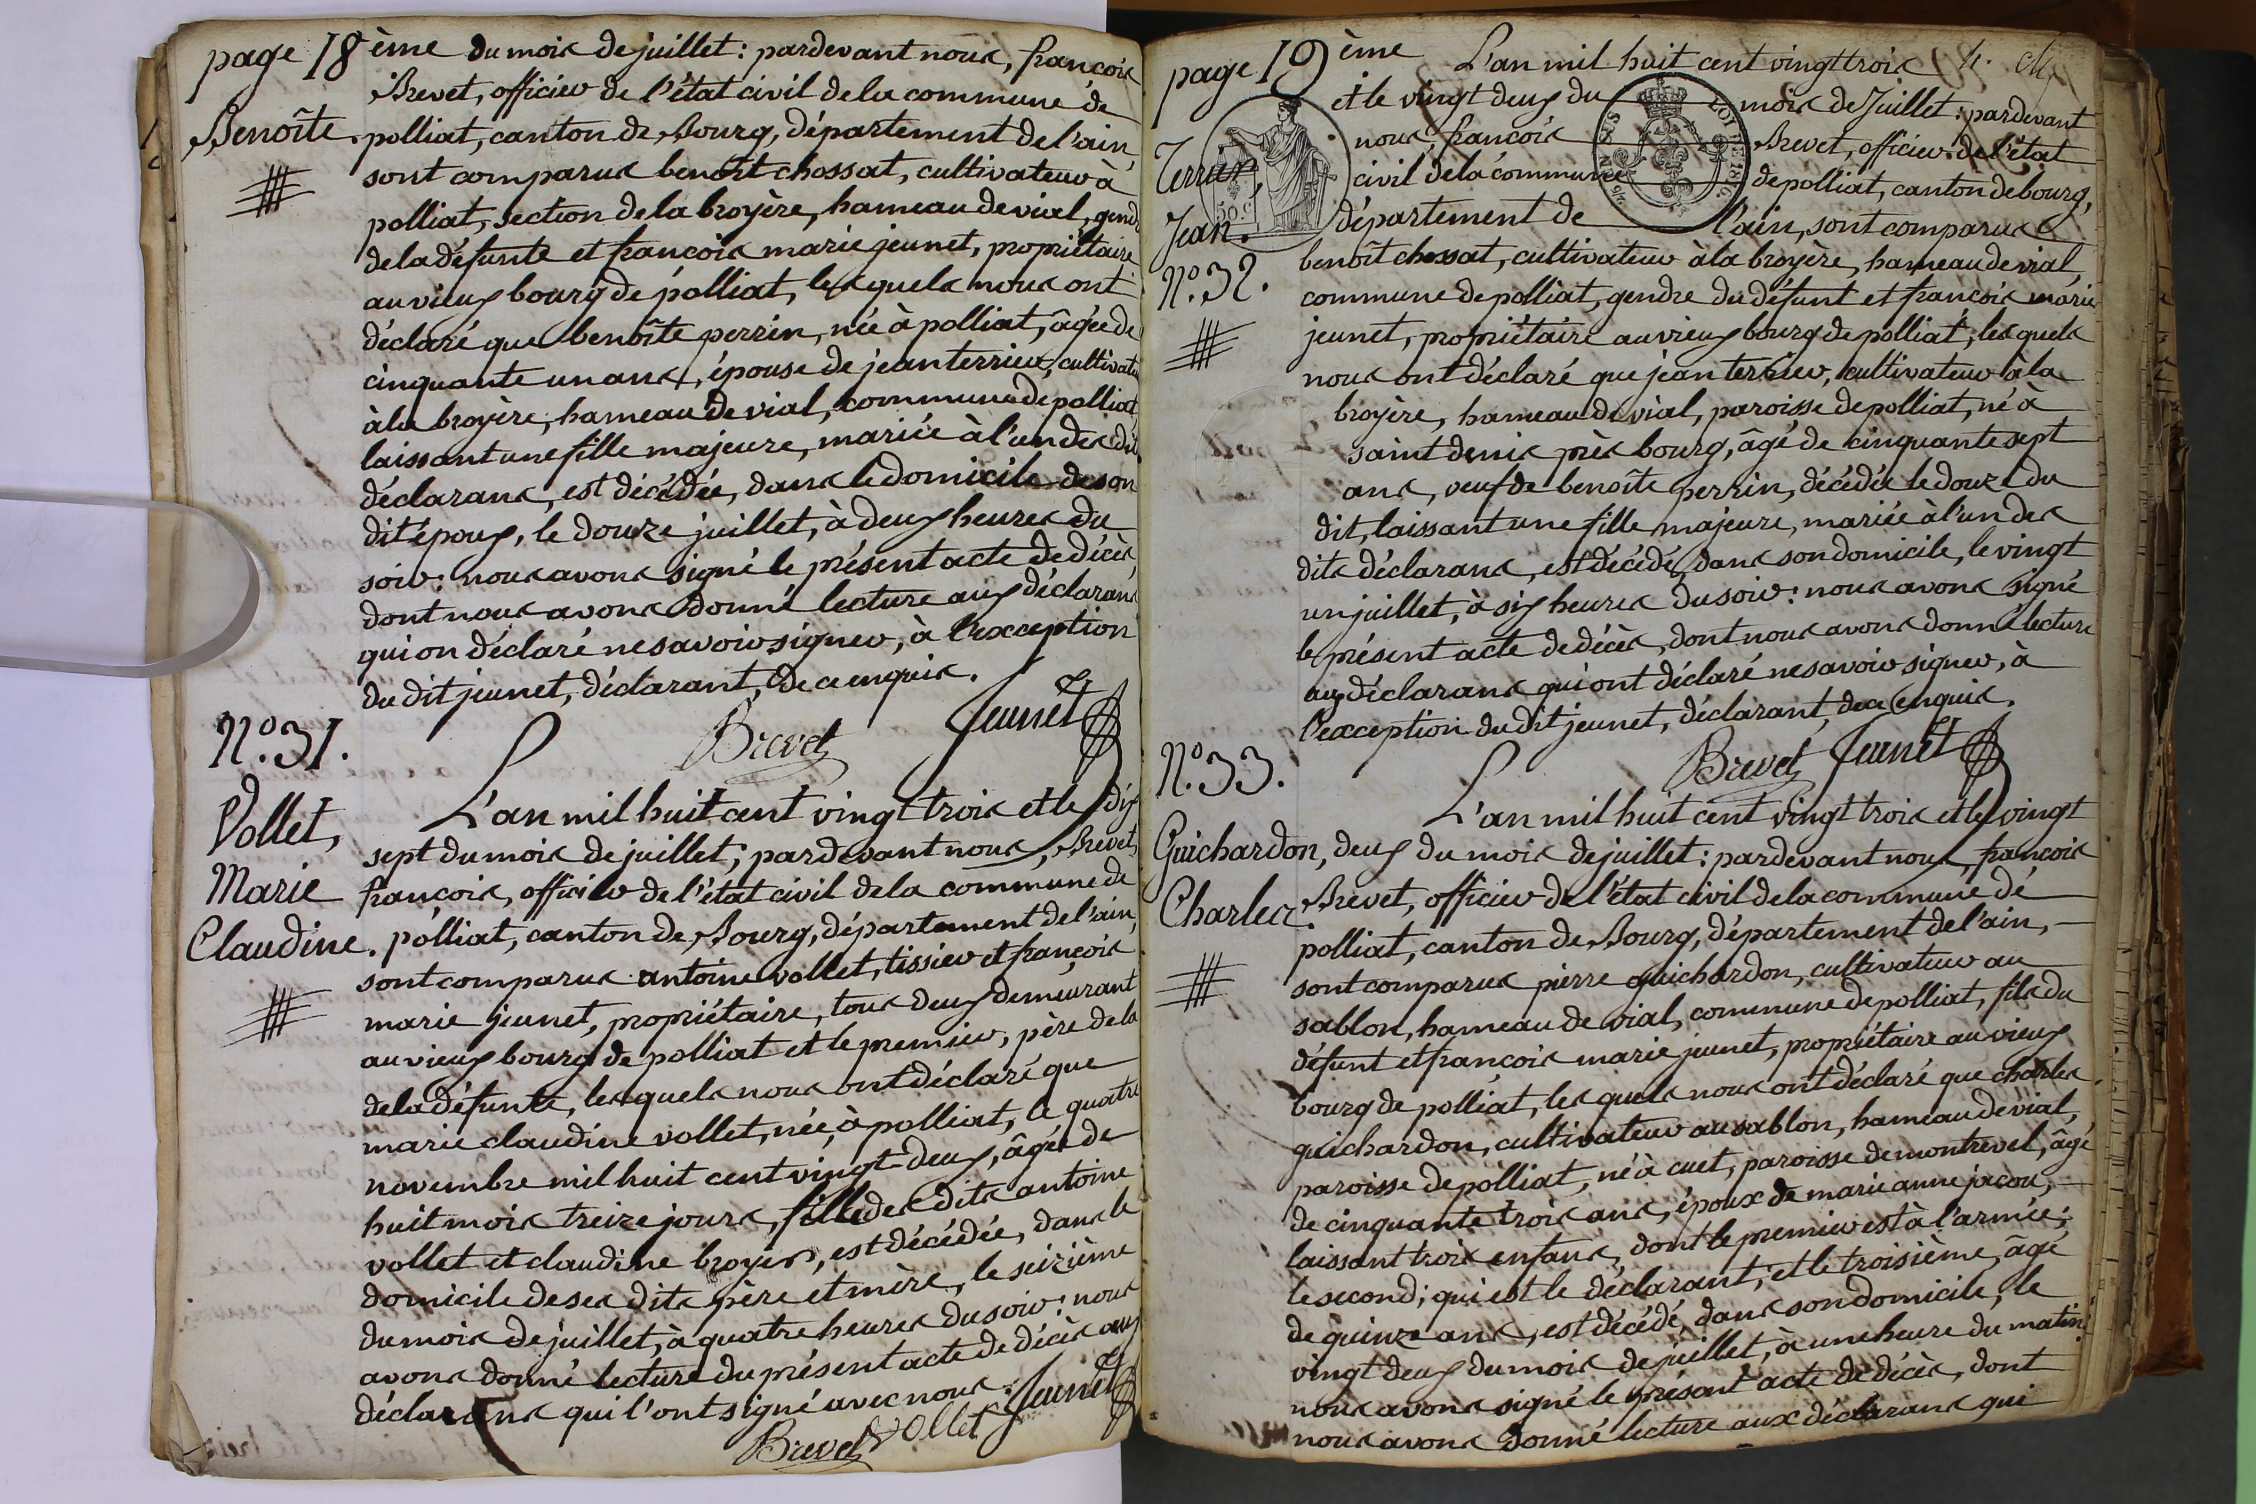 page 18ème du mois de juillet : pardevant nous, françois
Brevet, officier de l'état civil de la commune de
Benoîte. polliat, canton de Bourg, département de l'ain,
sont comparus benoît chossat, cultivateur à
polliat, section de la broyère, hameau de vial, gend
de la défunte et françois marie jeunet, propriétaire
au vieux bourg de polliat, lesquels nous ont
déclaré que benoîte perrin, née à polliat, âgée de
cinquante un ans, épouse de jean terrier, cultivateu
à la broyère, hameau de vial, commune de polliat,
laissant une fille majeure, mariée à l'un des dit
déclarans, est décédée, dans le domicile de son
dit époux, le douze juillet, à deux heures du
soir : nous avons signé le présent acte de décès,
dont nous avons donné lecture aux déclarans
qui on déclaré ne savoir signer, à l'exception
du dit jeunet, déclarant, de ce enquis.
Brevet Jeunet
N°. 31.
Vollet,
Marie
Claudine.
L'an mil huit cent vingt trois et le dix
sept du mois de juillet ; pardevant nous, Brevet,
françois, officier de l'état civil de la commune de
polliat, canton de Bourg, département de l'ain,
sont comparus antoine vollet, tissier et françois
marie jeunet, propriétaire, tous deux demeurant
au vieux bourg de polliat et le premier, père de la
de la défunte, lesquels nous ont déclaré que
marie claudine vollet, née à polliat, le quatre
novembre mil huit cent vingt-deux, âgée de
huit mois treize jours, fille des dits antoine
vollet et claudine broyer, est décédée, dans le
domicile de ses dits père et mère, le seizième
du mois de juillet, à quatre heures du soir : nous
avons donné lecture du présent acte de décès aux
déclarans qui l'ont signé avec nous. Jeunet
Brevet Vollet
page 19ème
Terrier
Jean.
N°. 32.
50 c.
L'an mil huit cent vingt trois
et le vingt deux du mois de Juillet : pardevant
nous, françois Brevet, officier de l'état
civil de la commune de polliat, canton de bourg,
département de l'ain, sont comparus
benoît chossat, cultivateur à la broyère, hameau de vial,
commune de polliat, gendre du défunt et françois marie
jeunet, propriétaire au vieux bourg de polliat, lesquels
nous ont déclaré que jean terrier, cultivateur à la
broyère, hameau de vial, paroisse de polliat, né à
saint denis près bourg, âgé de cinquante sept
ans, veuf de benoîte perrin, décédée le douze du
dit, laissant une fille majeure, mariée à l'un des
dits déclarans, est décédé, dans son domicile, le vingt
un juillet, à six heures du soir : nous avons signé
le présent acte de décès, dont nous avons donné lecture
aux déclarans qui ont déclaré ne savoir signer, à
l'exception du dit jeunet, déclarant, de ce enquis.
Brevet Jeunet
N°. 33.
Guichardon,
Charles.
L'an mil huit cent vingt trois et le vingt
deux du mois de juillet : pardevant nous, françois
Brevet, officier de l'état civil de la commune de
polliat, canton de Bourg, département de l'ain,
sont comparus pierre guichardon, cultivateur au
sablon, hameau de vial, commune de polliat, fils du
défunt et françois marie jeunet, propriétaire au vieux
bourg de polliat, lesquels nous ont déclaré que charles
guichardon, cultivateur au sablon, hameau de vial,
paroisse de polliat, né à cuet, paroisse de montrevel, âgé
de cinquante trois ans, époux de marie anne jacou,
laissant trois enfans, dont le premier est à l'armée ;
le second ; qui est le déclarant ; et le troisième, âgé
de quinze ans, est décédé, dans son domicile, le
vingt deux du mois de juillet, à une heure du matin :
nous avons signé le présent acte de décès, dont
nous avons donné lecture aux déclarans qui